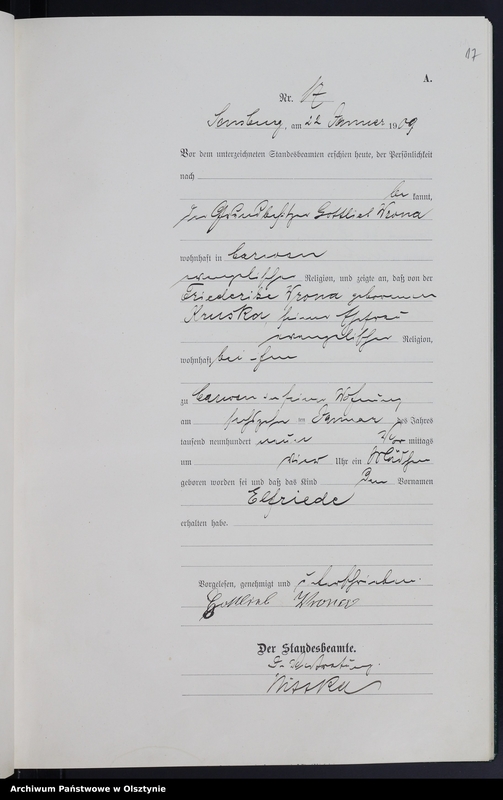 17
A.
Nr. 17
Sensburg, am 22 Januar 1909
Vor dem unterzeichneten Standesbeamten erschien heute, der Persönlichkeit
nach
be kannt,
der Grundbesitzer Gottlieb Wrona
wohnhaft in Carwen
evangelischer Religion, und zeigte an, daß von der
Friederike Wrona geborenen
Kruska, seiner Ehefrau
evangelischer Religion,
wohnhaft bei ihm
zu Carwen in seiner Wohnung
am sechszehn ten Januar des Jahres
tausend neunhundert neun Vor mittags
um vier Uhr ein Mädchen
geboren worden sei und daß das Kind den Vornamen
Elfriede
erhalten habe.
Vorgelesen, genehmigt und unterschrieben.
Gottlieb Wrona
Der Standesbeamte.
In Vertretung.
Archiwum Państwowe w Olsztynie